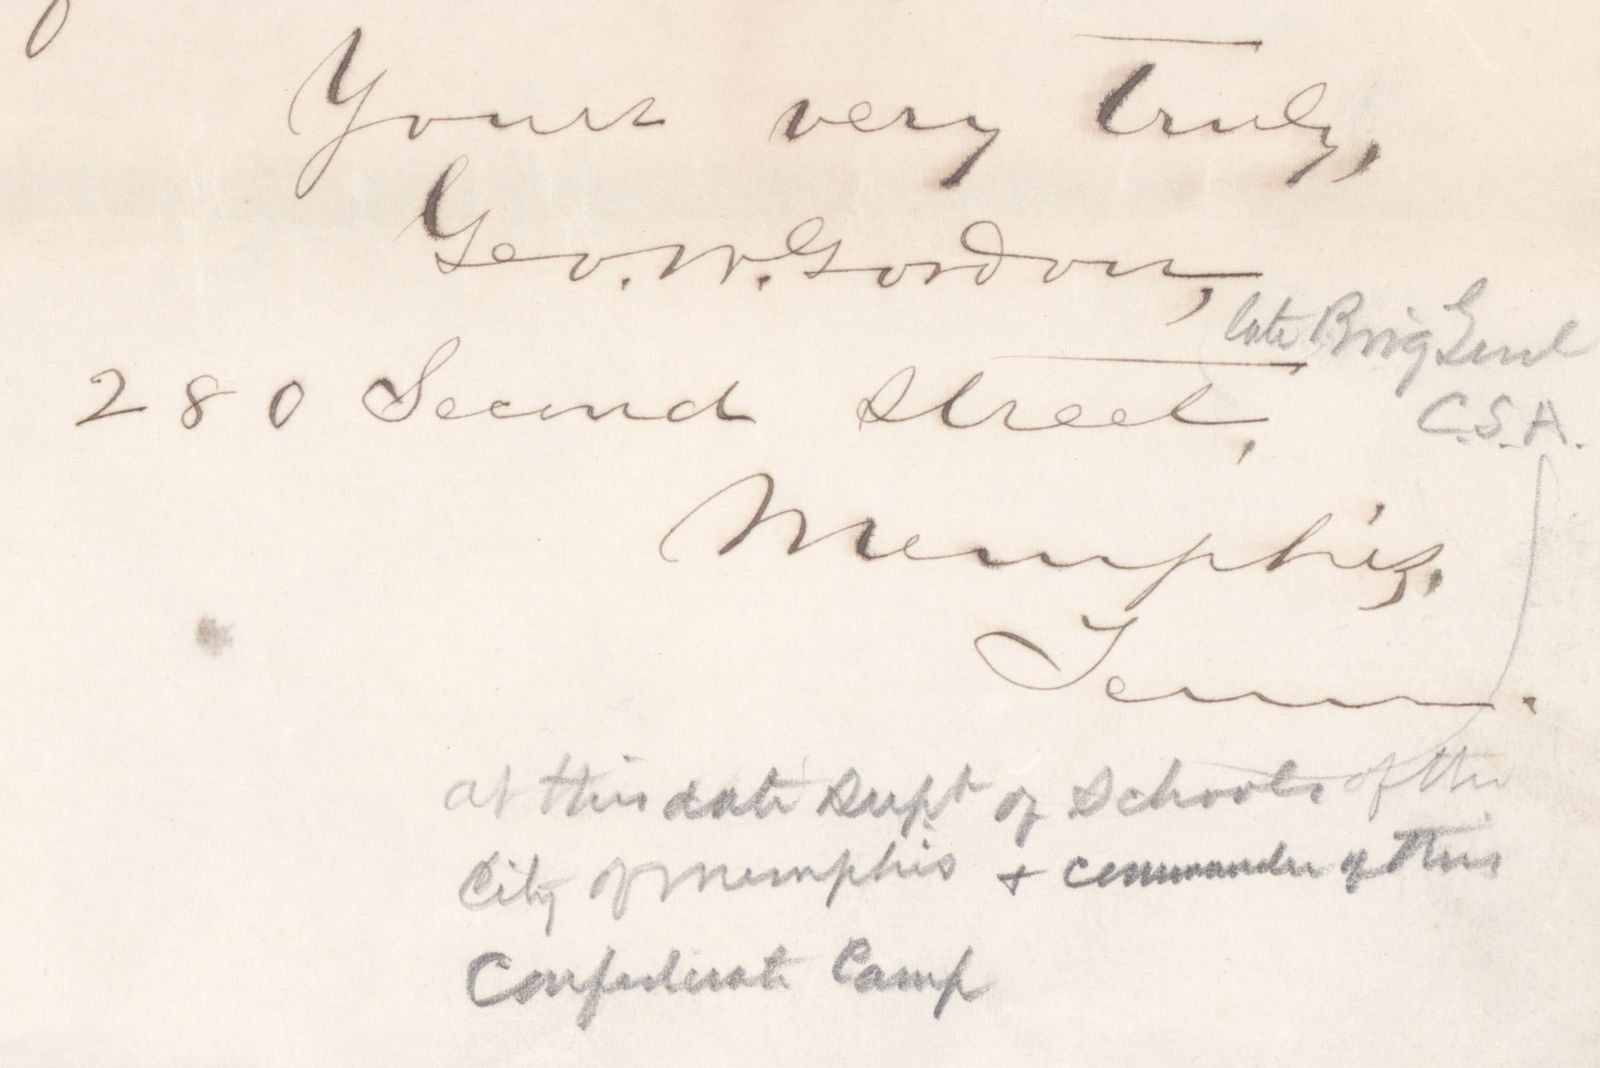 Yours very truly,
Geo. W. Gordon,
late Brig Genl
280 Second Street,
C.S.A.
Memphis,
Tenn.
at this date Supt of Schools of the
City of Memphis & commander of this
Confederate Camp